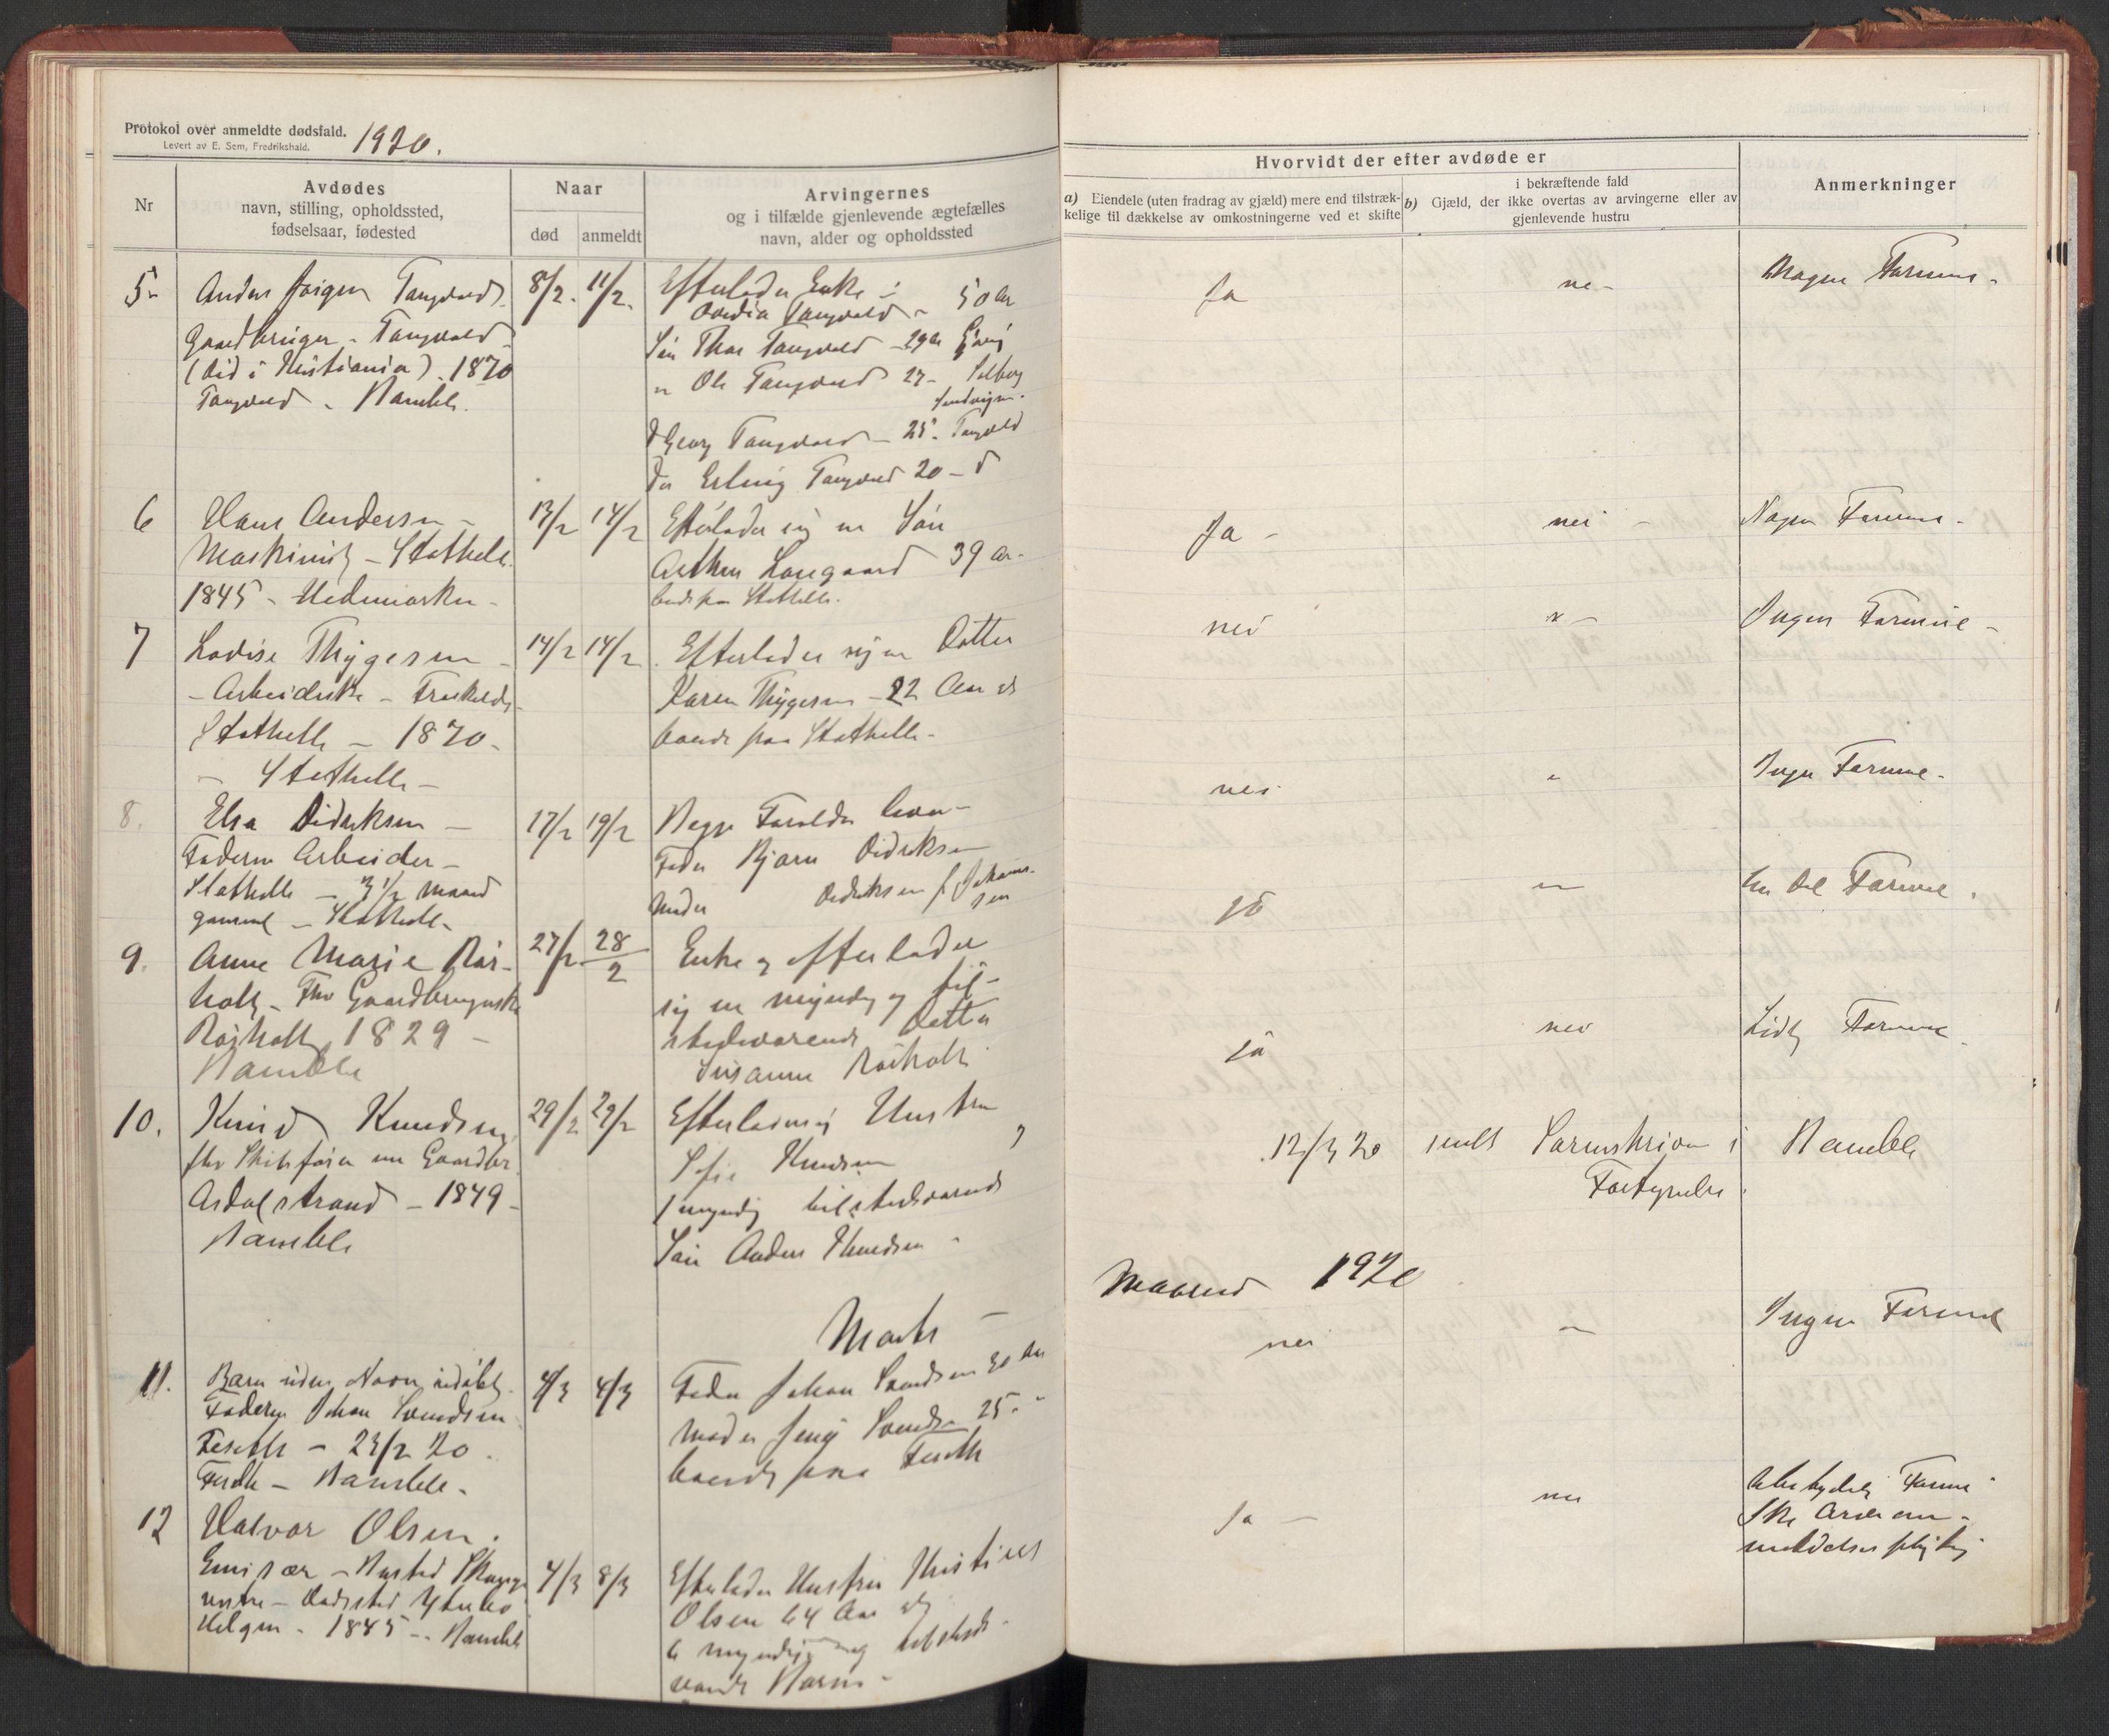 Protokol over anmeldte dødsfald. 1920.
Levert av E. Sem, Fredrikshald.
Nr
Avdødes
navn, stilling, opholdssted,
fødselsaar, fødested
Naar
død
anmeldt
Arvingernes
og i tilfælde gjenlevende ægtefælles
navn, alder og opholdssted
Hvorvidt der efter avdøde er
a) Eiendele (uten fradrag av gjæld) mere end tilstræk-
kelige til dækkelse av omkostningerne ved et skifte
i bekræftende fald
b) Gjæld, der ikke overtas av arvingerne eller av
gjenlevende hustru
Anmerkninger
5
Anders Jørgen Tangvald
Gaardbruger - Tangvald
(død i Kristiania). 1870
Tangvald - Bamble.
8/2. 11/2.
Efterlader Enke :
Tangvald - 50 Aar
Søn Thor Tangvald - 29 Aar
" Ole Tangvald 27 -
Georg Tangvald - 25. Tangvald
Do Erling Tangvald 20 - d
Ja
nei -
Nogen Formue -
6
Hans Andersen -
Maskinist - Stathelle.
1845 - Hedemarken -
13/2 14/2
Efterlader sig en Søn
Arthur Langaard 39 Aar -
boende paa Stathelle.
Ja -
nei -
Nogen Formue -
7
Lovise Thygesen -
- Arbeiderske - Frækelds
Stathelle - 1870 -
- Stathelle -
14/2 14/2
Efterlader sig en Datter
Karen Thygesen - 22 Aar
boende paa Stathelle -
nei
" -
Ingen Formue -
8.
Elsa Didriksen -
Faderen Arbeider -
Stathelle - 3 1/2 Maaned
gammel - Stathelle -
17/2 19/2
Begge Forældre lever -
Fader Bjarne Didriksen
Moder Didriksen f. Johans-
sen
nei
"
Ingen Formue -
9.
Anne Marie Rør-
holt - Fhv Gaardbrugerske
Rørholt 1829 -
Bamble
27/2 28/2
Enke og efterlader
sig en myndig og til-
stedeværende Datter
Susanne Rørholt
ja
-
En Del Formue.
10.
Knud Knudsen
fhv Skibsfører nu Gaardbr.
Asdalstrand - 1849 -
Bamble
29/2 29/2
Efterlader sig Hustru
Sofie Knudsen og
1 myndig tilstedeværende
Søn Anders Knudsen -
ja
nei
Lidt Formue
12/3 20 sendt Sorenskriveren i Bamble
Fortegnelse.
Marts -
Maaned 1920
11.
Barn uden Navn, udøbt.
Faderen Johan Svendsen
Feseth - 23/2 20.
Feseth - Bamble.
4/3 4/3
Fader Johan Svendsen 30 Aar
Moder Jenny Svendsen 25 - "
boende paa Feseth
nei
-
Ingen Formue
12
Halvor Olsen.
Emisær - Bosted
vestre - Dødssted
Helgen - 1845 - Bamble
4/3 8/3
Efterlader Hustru Kristine
Olsen 64 Aar og
6 myndige og tilstede-
værende Børn -
Ja -
nei
Ubetydelig Formue
Ikke Arvean-
meldelsespligtig